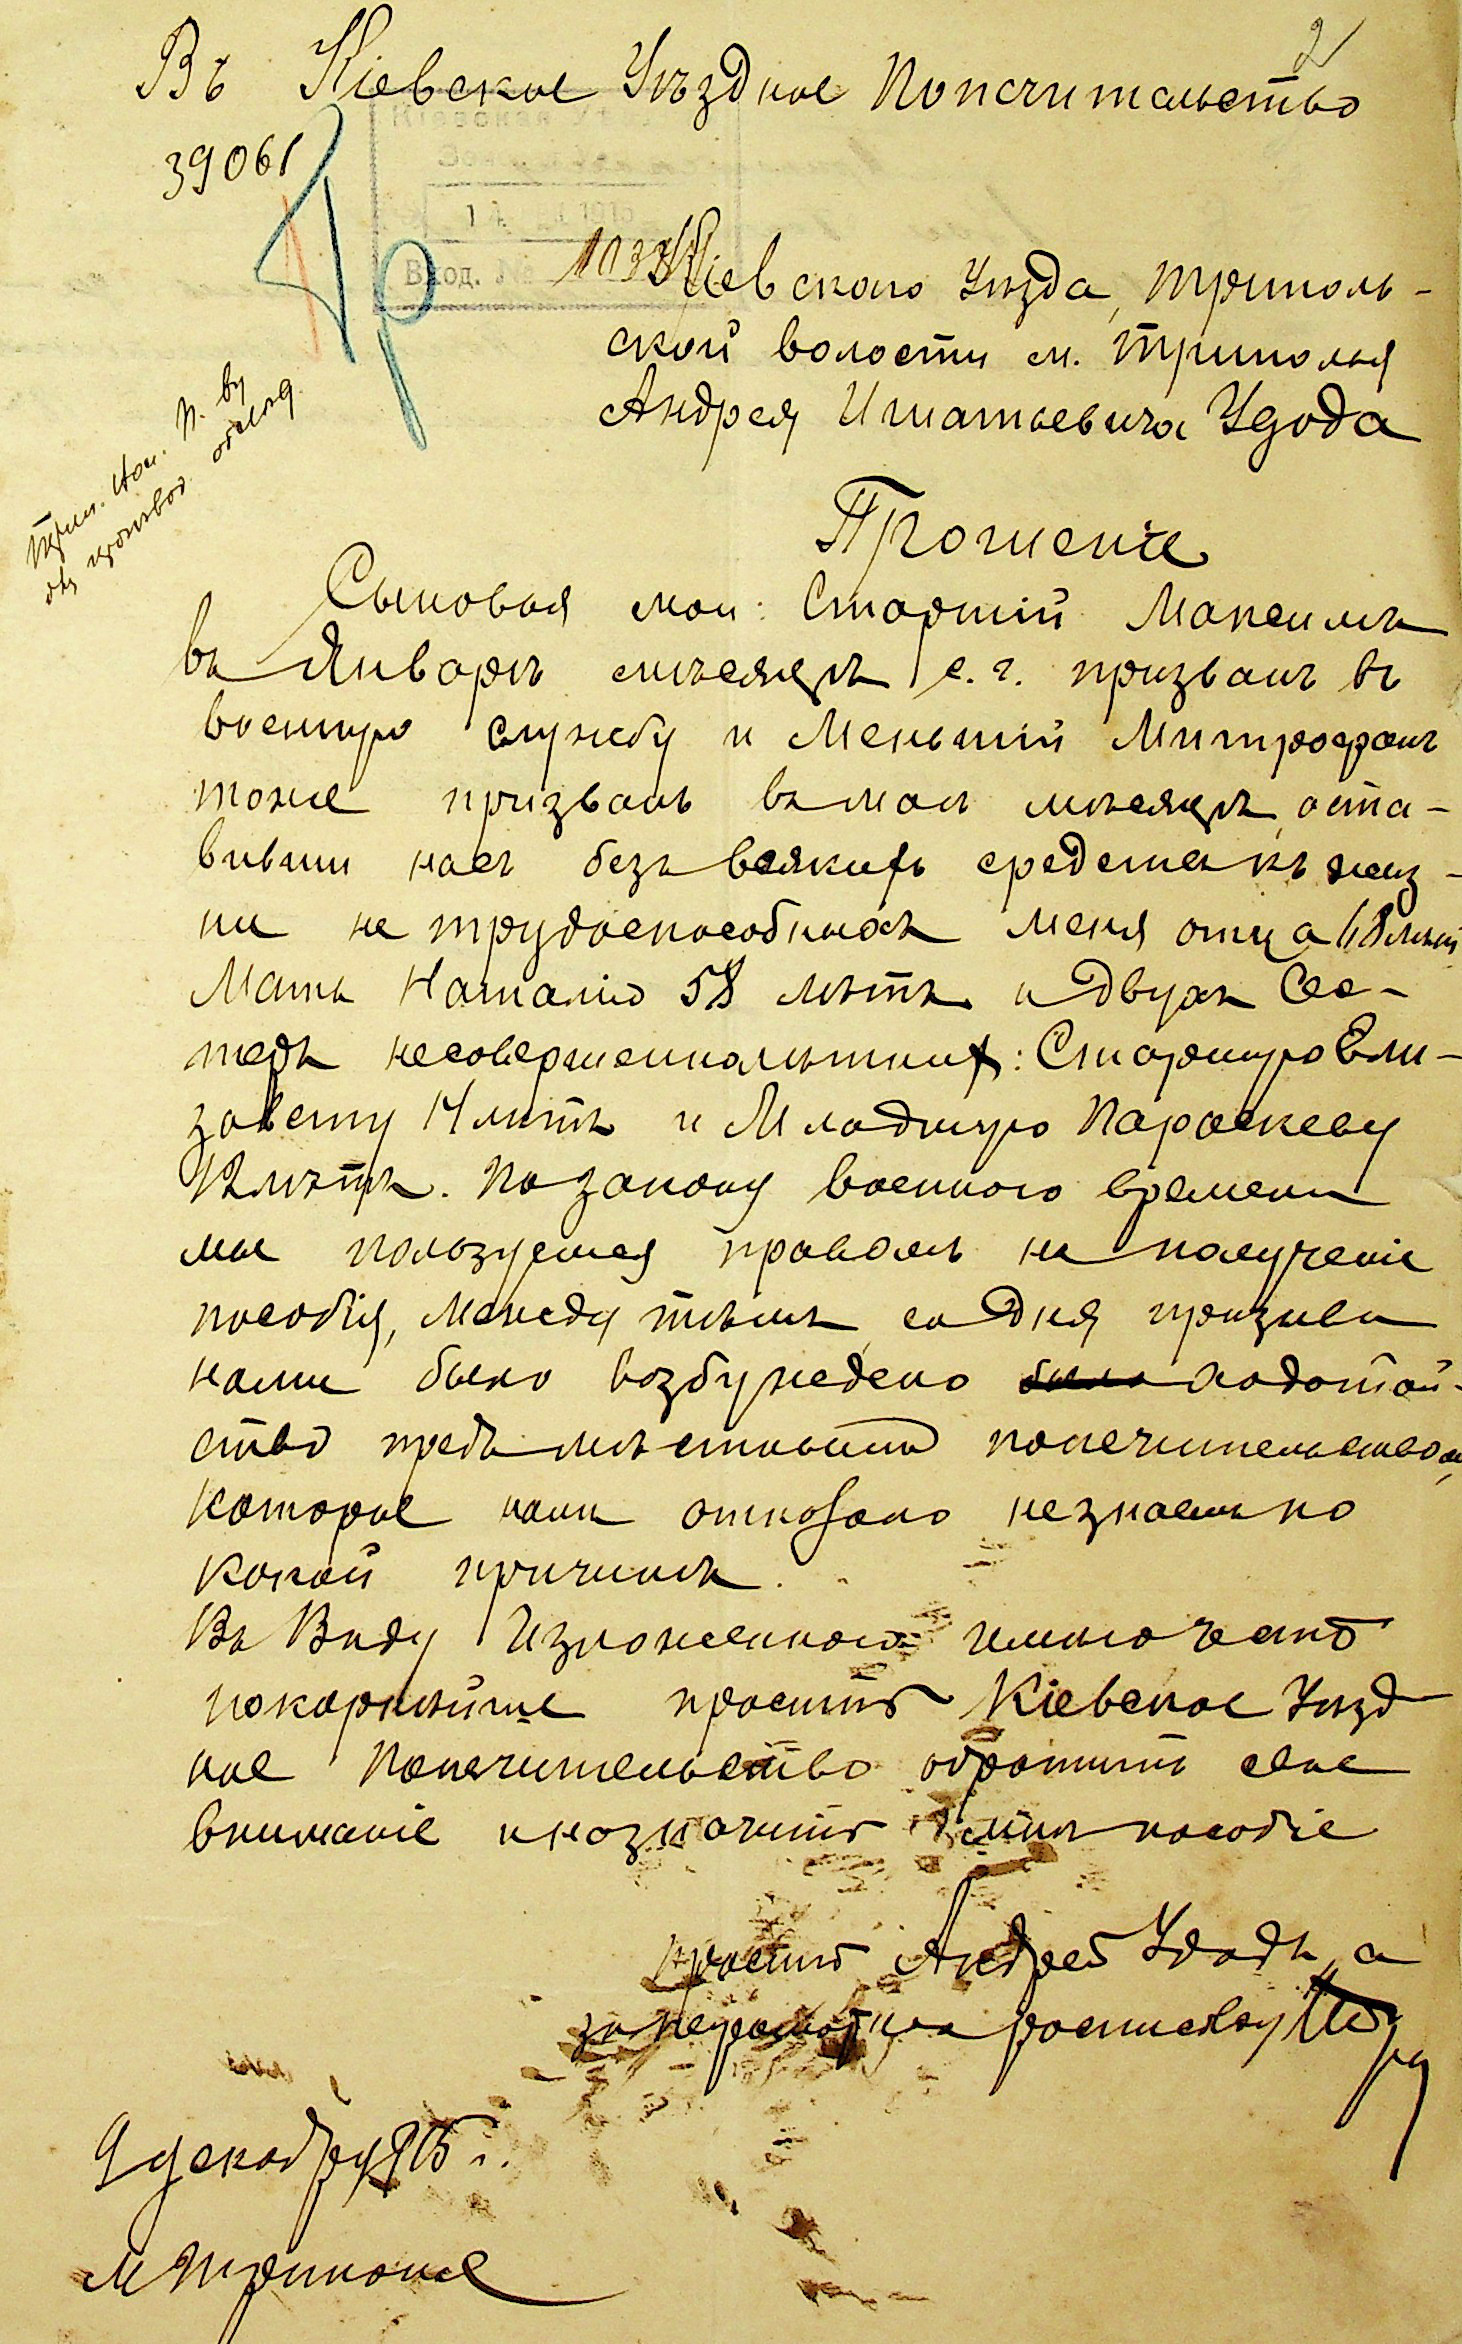 2
Въ Кіевское Уѣздное Попечительство
39061
1915
Вход. №
Кіевскаго Уѣзда, Триполь-
ской волости м. Триполья
Андрея Игнатьевича Удода
Прошеніе
Сыновья мои: Старшій Максимъ
въ Январѣ мѣсяцѣ с. г. призванъ въ
военную службу и Меньшій Митрофанъ
тоже призванъ въ маѣ мѣсяцѣ, оста-
вивши насъ безъ всякихъ средствъ къ жиз-
ни не трудоспособныхъ меня отца
Мать Наталію 58 лѣтъ и двухъ Сес-
теръ несовершеннолѣтних: Старшую Ели-
завету 14 лѣтъ и Младшую Параскеву
12 лѣтъ. По закону военного времени
мы пользуемся правомъ на полученіе
пособія, между тѣмъ, со дня призыва
нами было возбуждено было ходатай-
ство предъ мѣстнымъ попечительствомъ,
которые намъ отказано незнаемъ по
какой причинѣ.
Въ Виду Изложенного имѣю честь
покорнѣйше просить Кіевское Уѣзд-
ное Попечительство обратить свое
вниманіе и назначить намъ пособіе
проситъ Андрей Удодъ, а
за неграмотнаго росписался
9 декабря 1915 г.
м Триполье